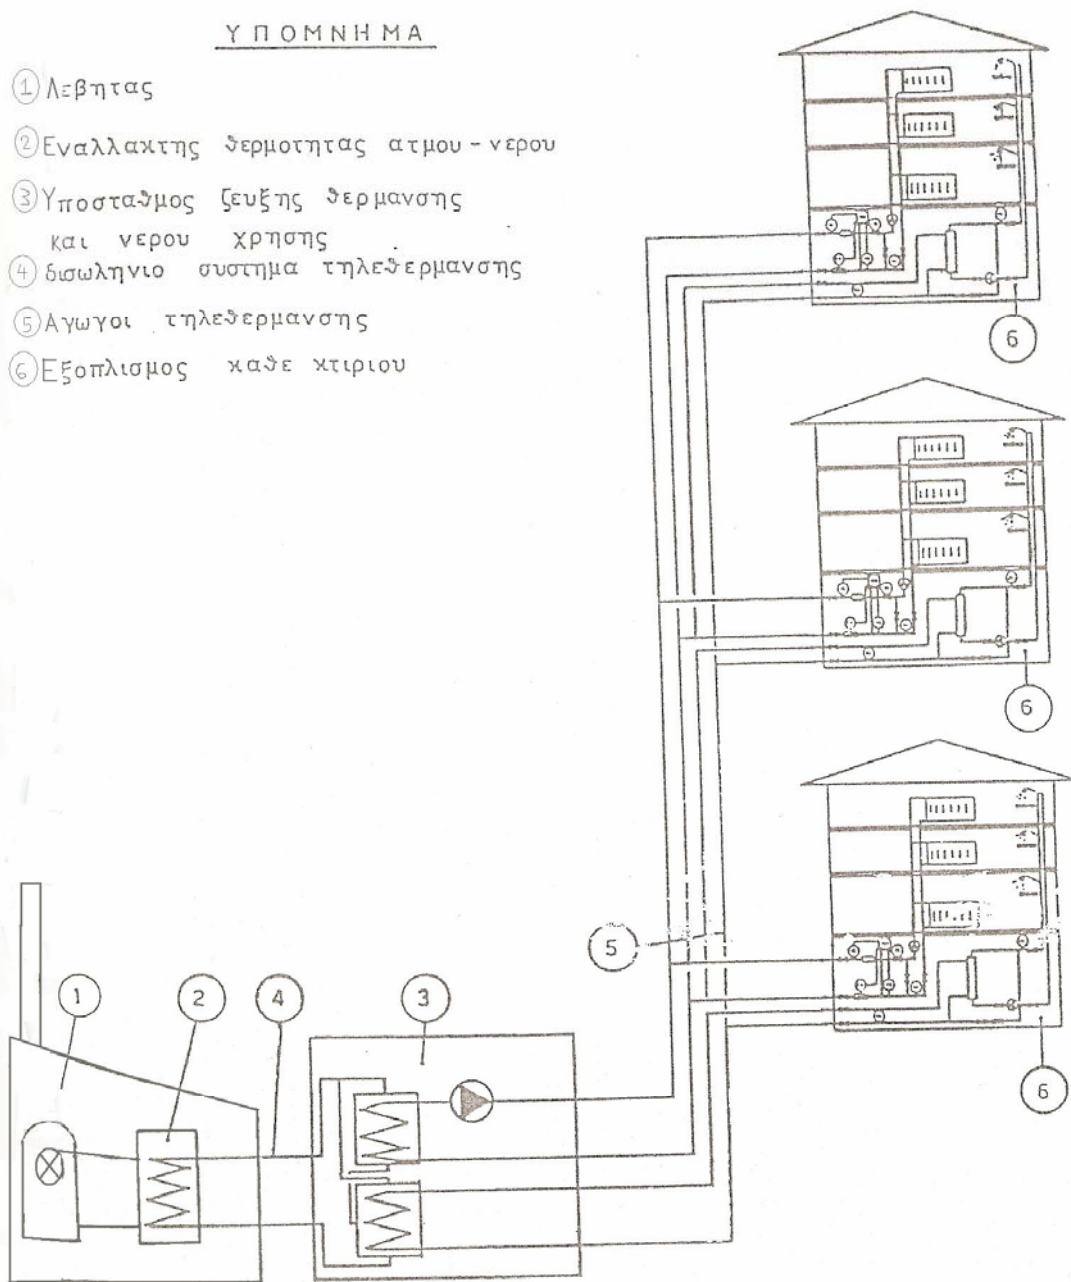 ΥΠΟΜΝΗΜΑ
1 Λεβητας
2 Εναλλακτης θερμοτητας ατμου - νερου
3 Υποσταθμος ζευξης θερμανσης
και νερου χρησης
4 δισωληνιο συστημα τηλεθερμανσης
5 Αγωγοι τηλεθερμανσης
6 Εξοπλισμος καθε κτιριου
6
6
5
1
2
4
3
6